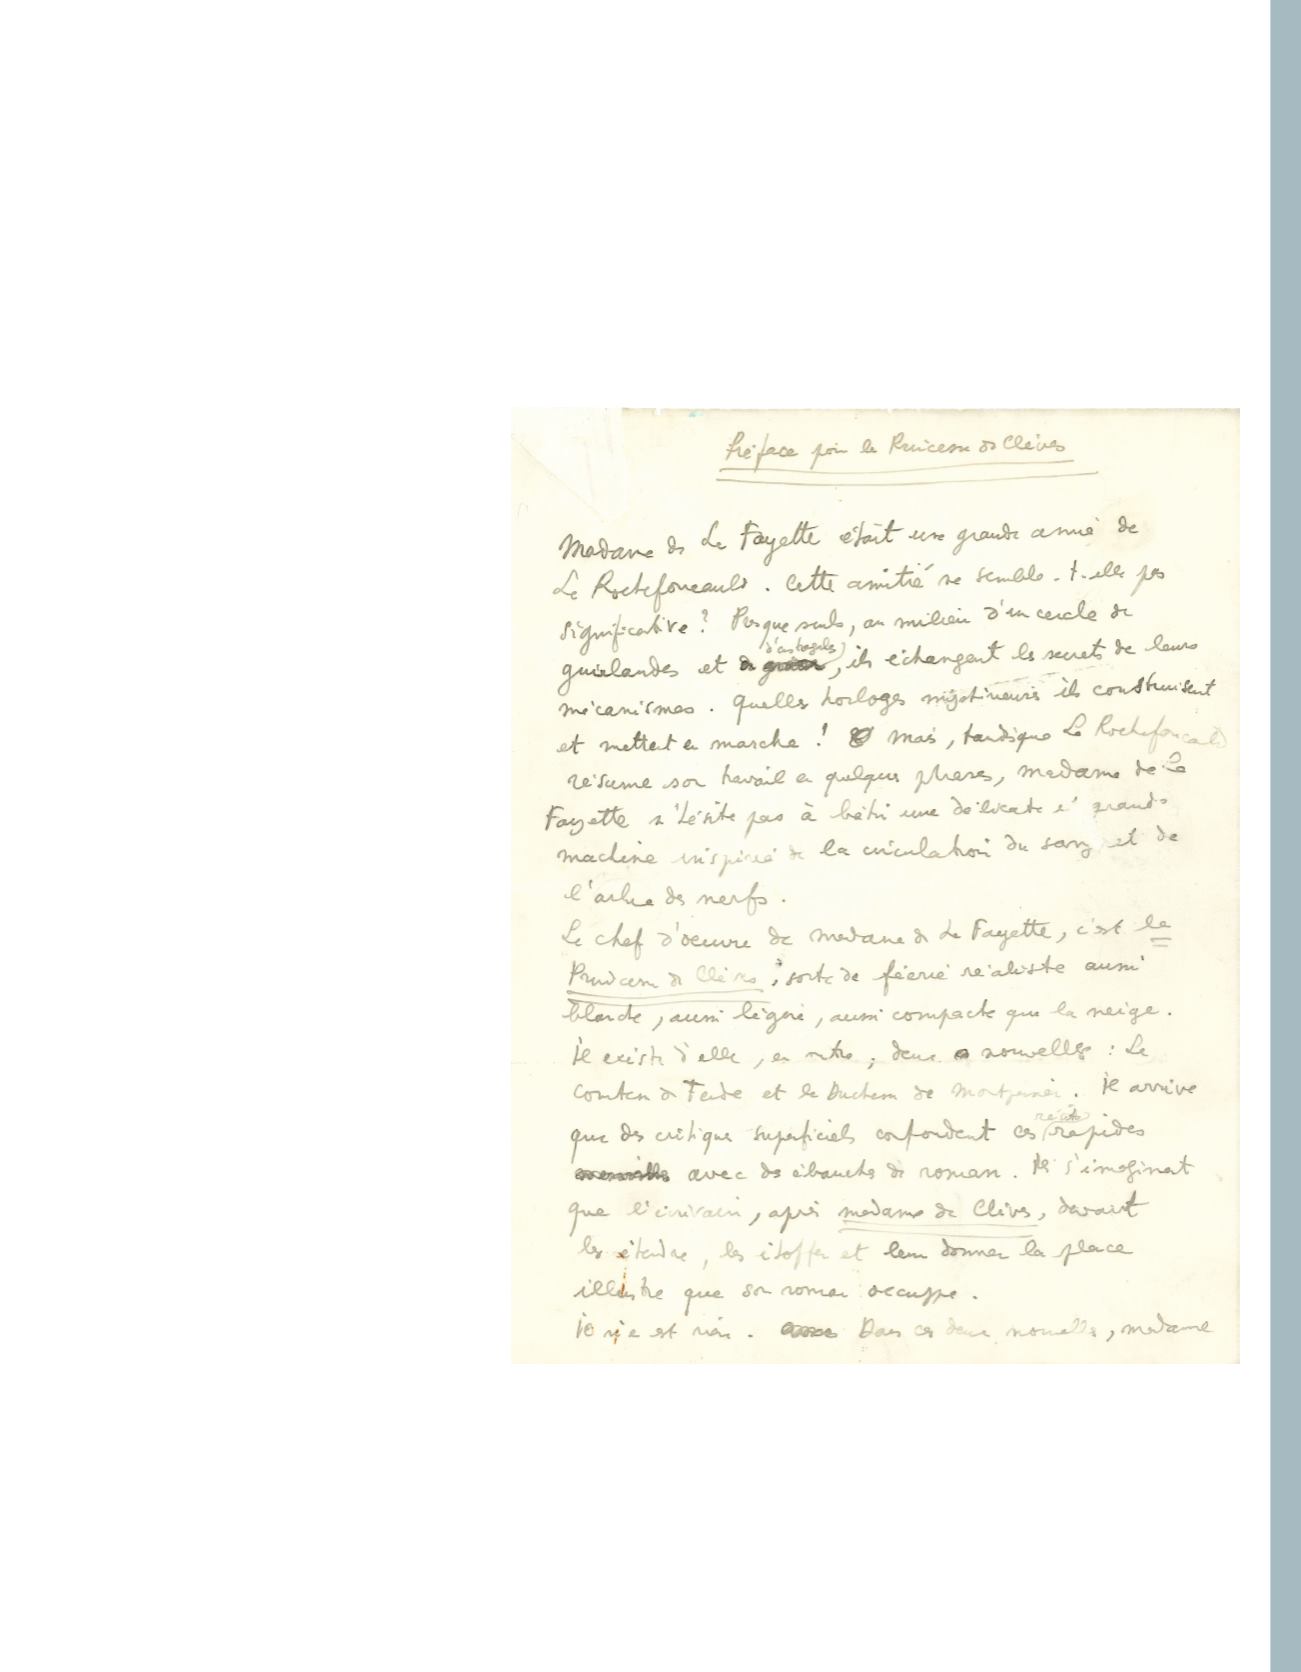 Préface pour la Princesse de Clèves
Madame de La Fayette était une grande amie de
La Rochefoucauld. Cette amitié ne semble-t-elle pas
significative? Presque seuls, au milieu d'un cercle de
d'astragales
guirlandes et de , ils échangent les secrets de leurs
mécanismes. Quelles horloges mystérieuses ils construisent
et mettent en marche! Mais, tandisque La Rochefoucauld
résume son travail en quelques phrases, madame de La
Fayette n'hésite pas à bâtir une délicate et grande
machine inspirée de la circulation du sang et de
l'arbre des nerfs.
Le chef d'oeuvre de madame de La Fayette, c'est la
Princesse de Clèves, sorte de féerie réaliste aussi
blanche, aussi légère, aussi compacte que la neige.
Il existe d'elle, en outre, deux nouvelles: La
Comtesse de Tende et la Duchesse de Montpensier. Il arrive
que des critiques superficiels confondent ces rapides
récits
avec des ébauches de roman. Ils s'imaginent
que l'écrivain, après madame de Clèves, devait
les étendre, les étoffer et leur donner la place
illustre que son roman occuppe.
Il n'en est rien. Dans ces deux nouvelles, madame